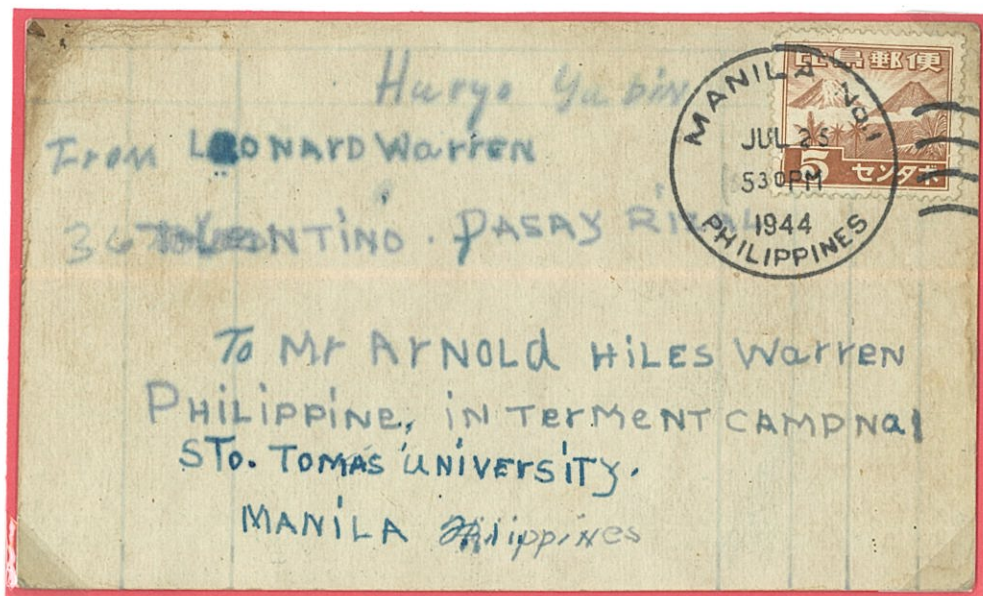 Huryo Yubin
From LEONARD Warren
36 TOLENTINO. PASAY RIZAL
To Mr ArNOLd HiLES Warren
PHILIPPINE, iN TerMENT CAMPNo1
STO. TOMAS UNiVERSITY.
MANiLA Philippines
比島郵便
5 センタボ
MANILA No.1
JUL 25
530PM
1944
PHILIPPINES